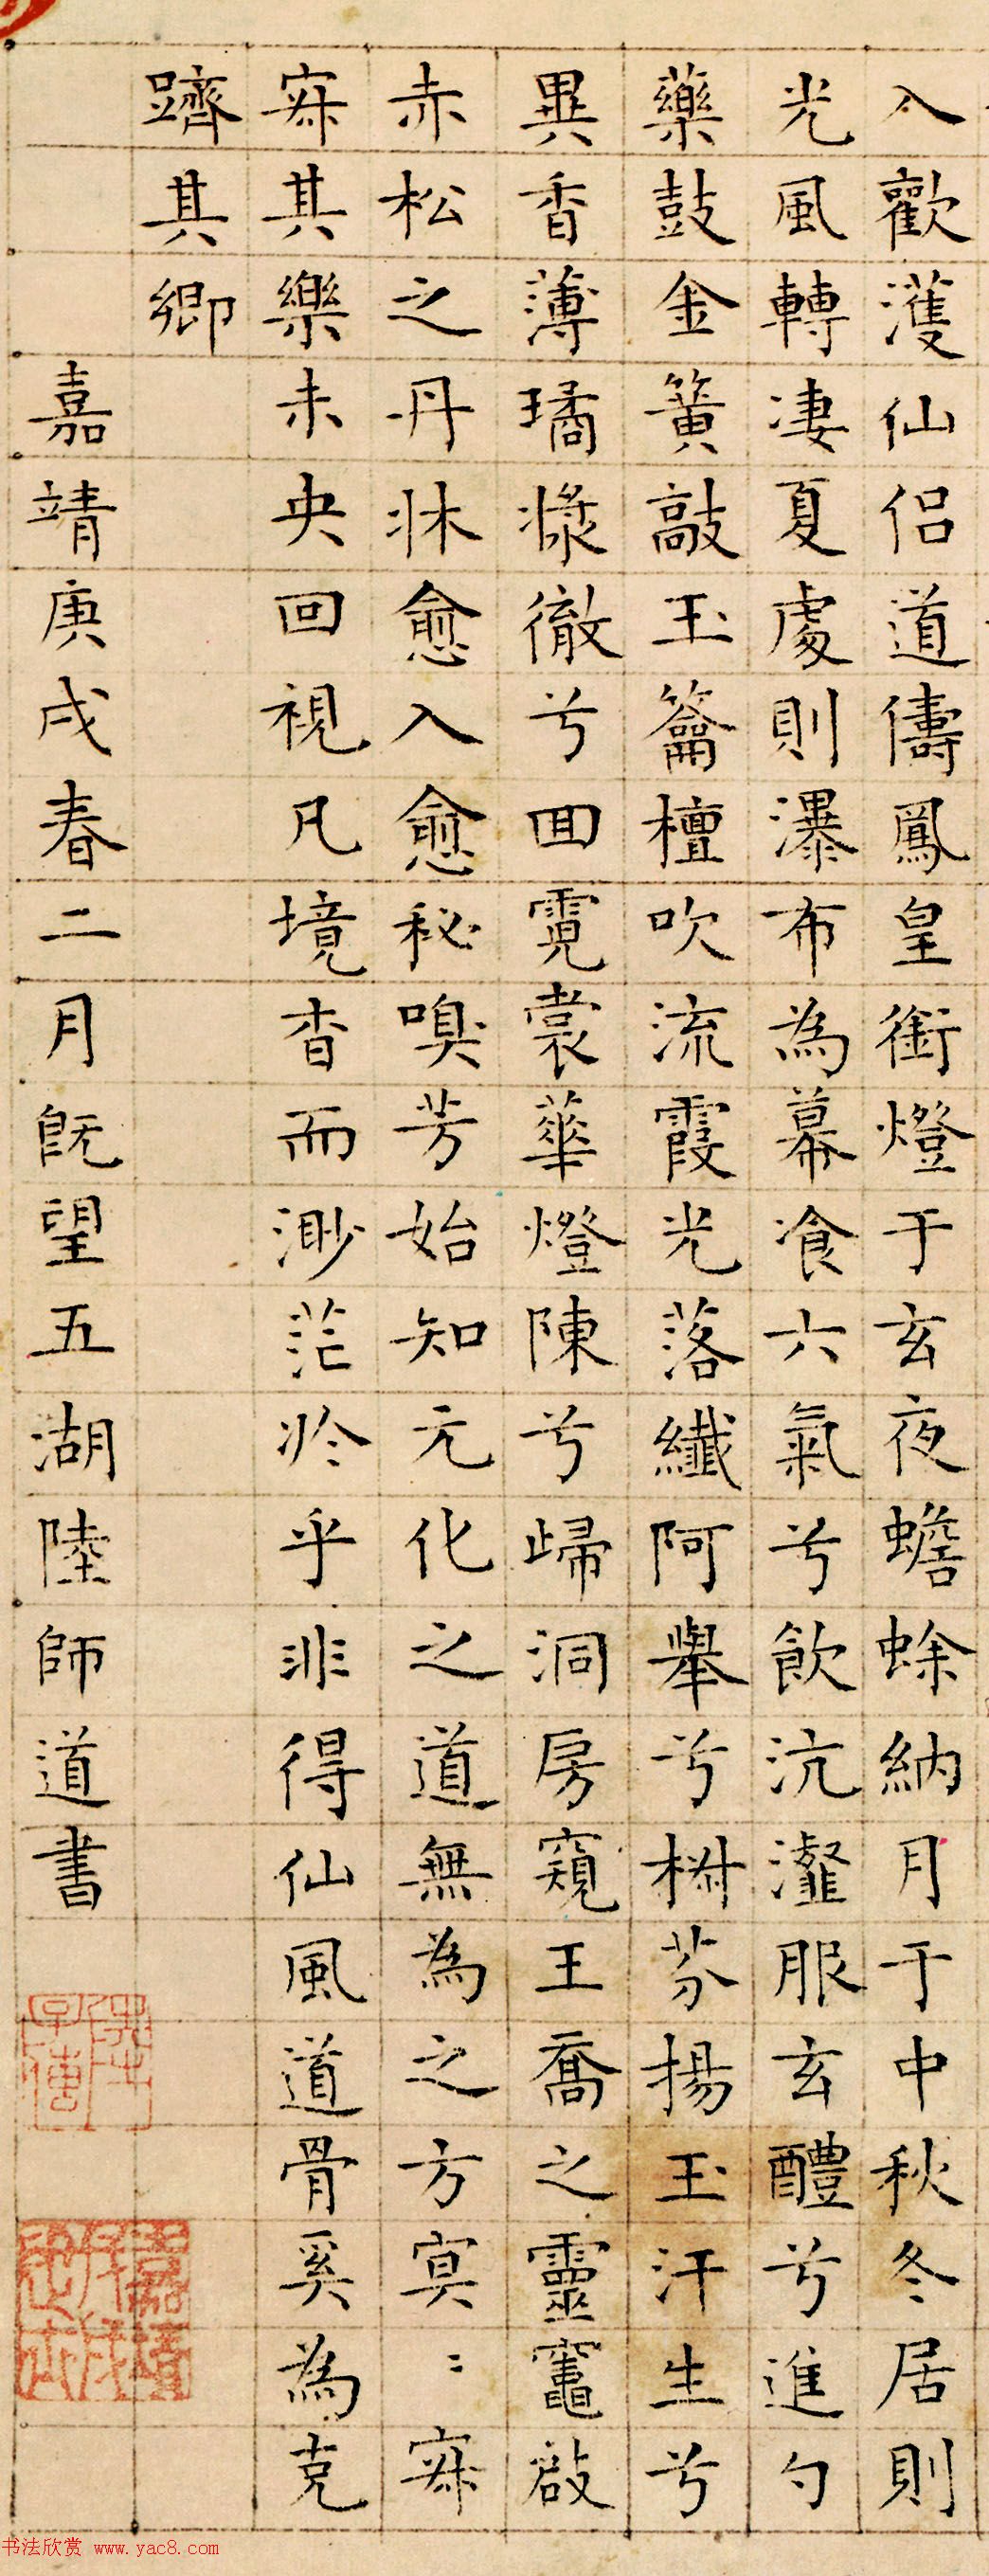 入歡濩仙侶道儔鳳皇銜燈于玄夜蟾蜍納月于中秋冬居則
光風轉凄夏處則瀑布為幕飡六氣兮飲沆瀣服玄醴兮進勺
藥鼓金簧敲玉籥檀吹流霞光落纖阿舉兮樹芬揚玉汗生兮
異香薄璚漿徹兮回霓裳華燈陳兮歸洞房窺王喬之靈竈啟
赤松之丹牀愈入愈秘嗅芳始知元化之道無為之方寞〻寂
寂其樂未央回視凡境杳而渺茫於乎非得仙風道骨奚為克
躋其鄉
嘉靖庚戌春二月既望五湖陸師道書
书法欣赏 www.yac8.com